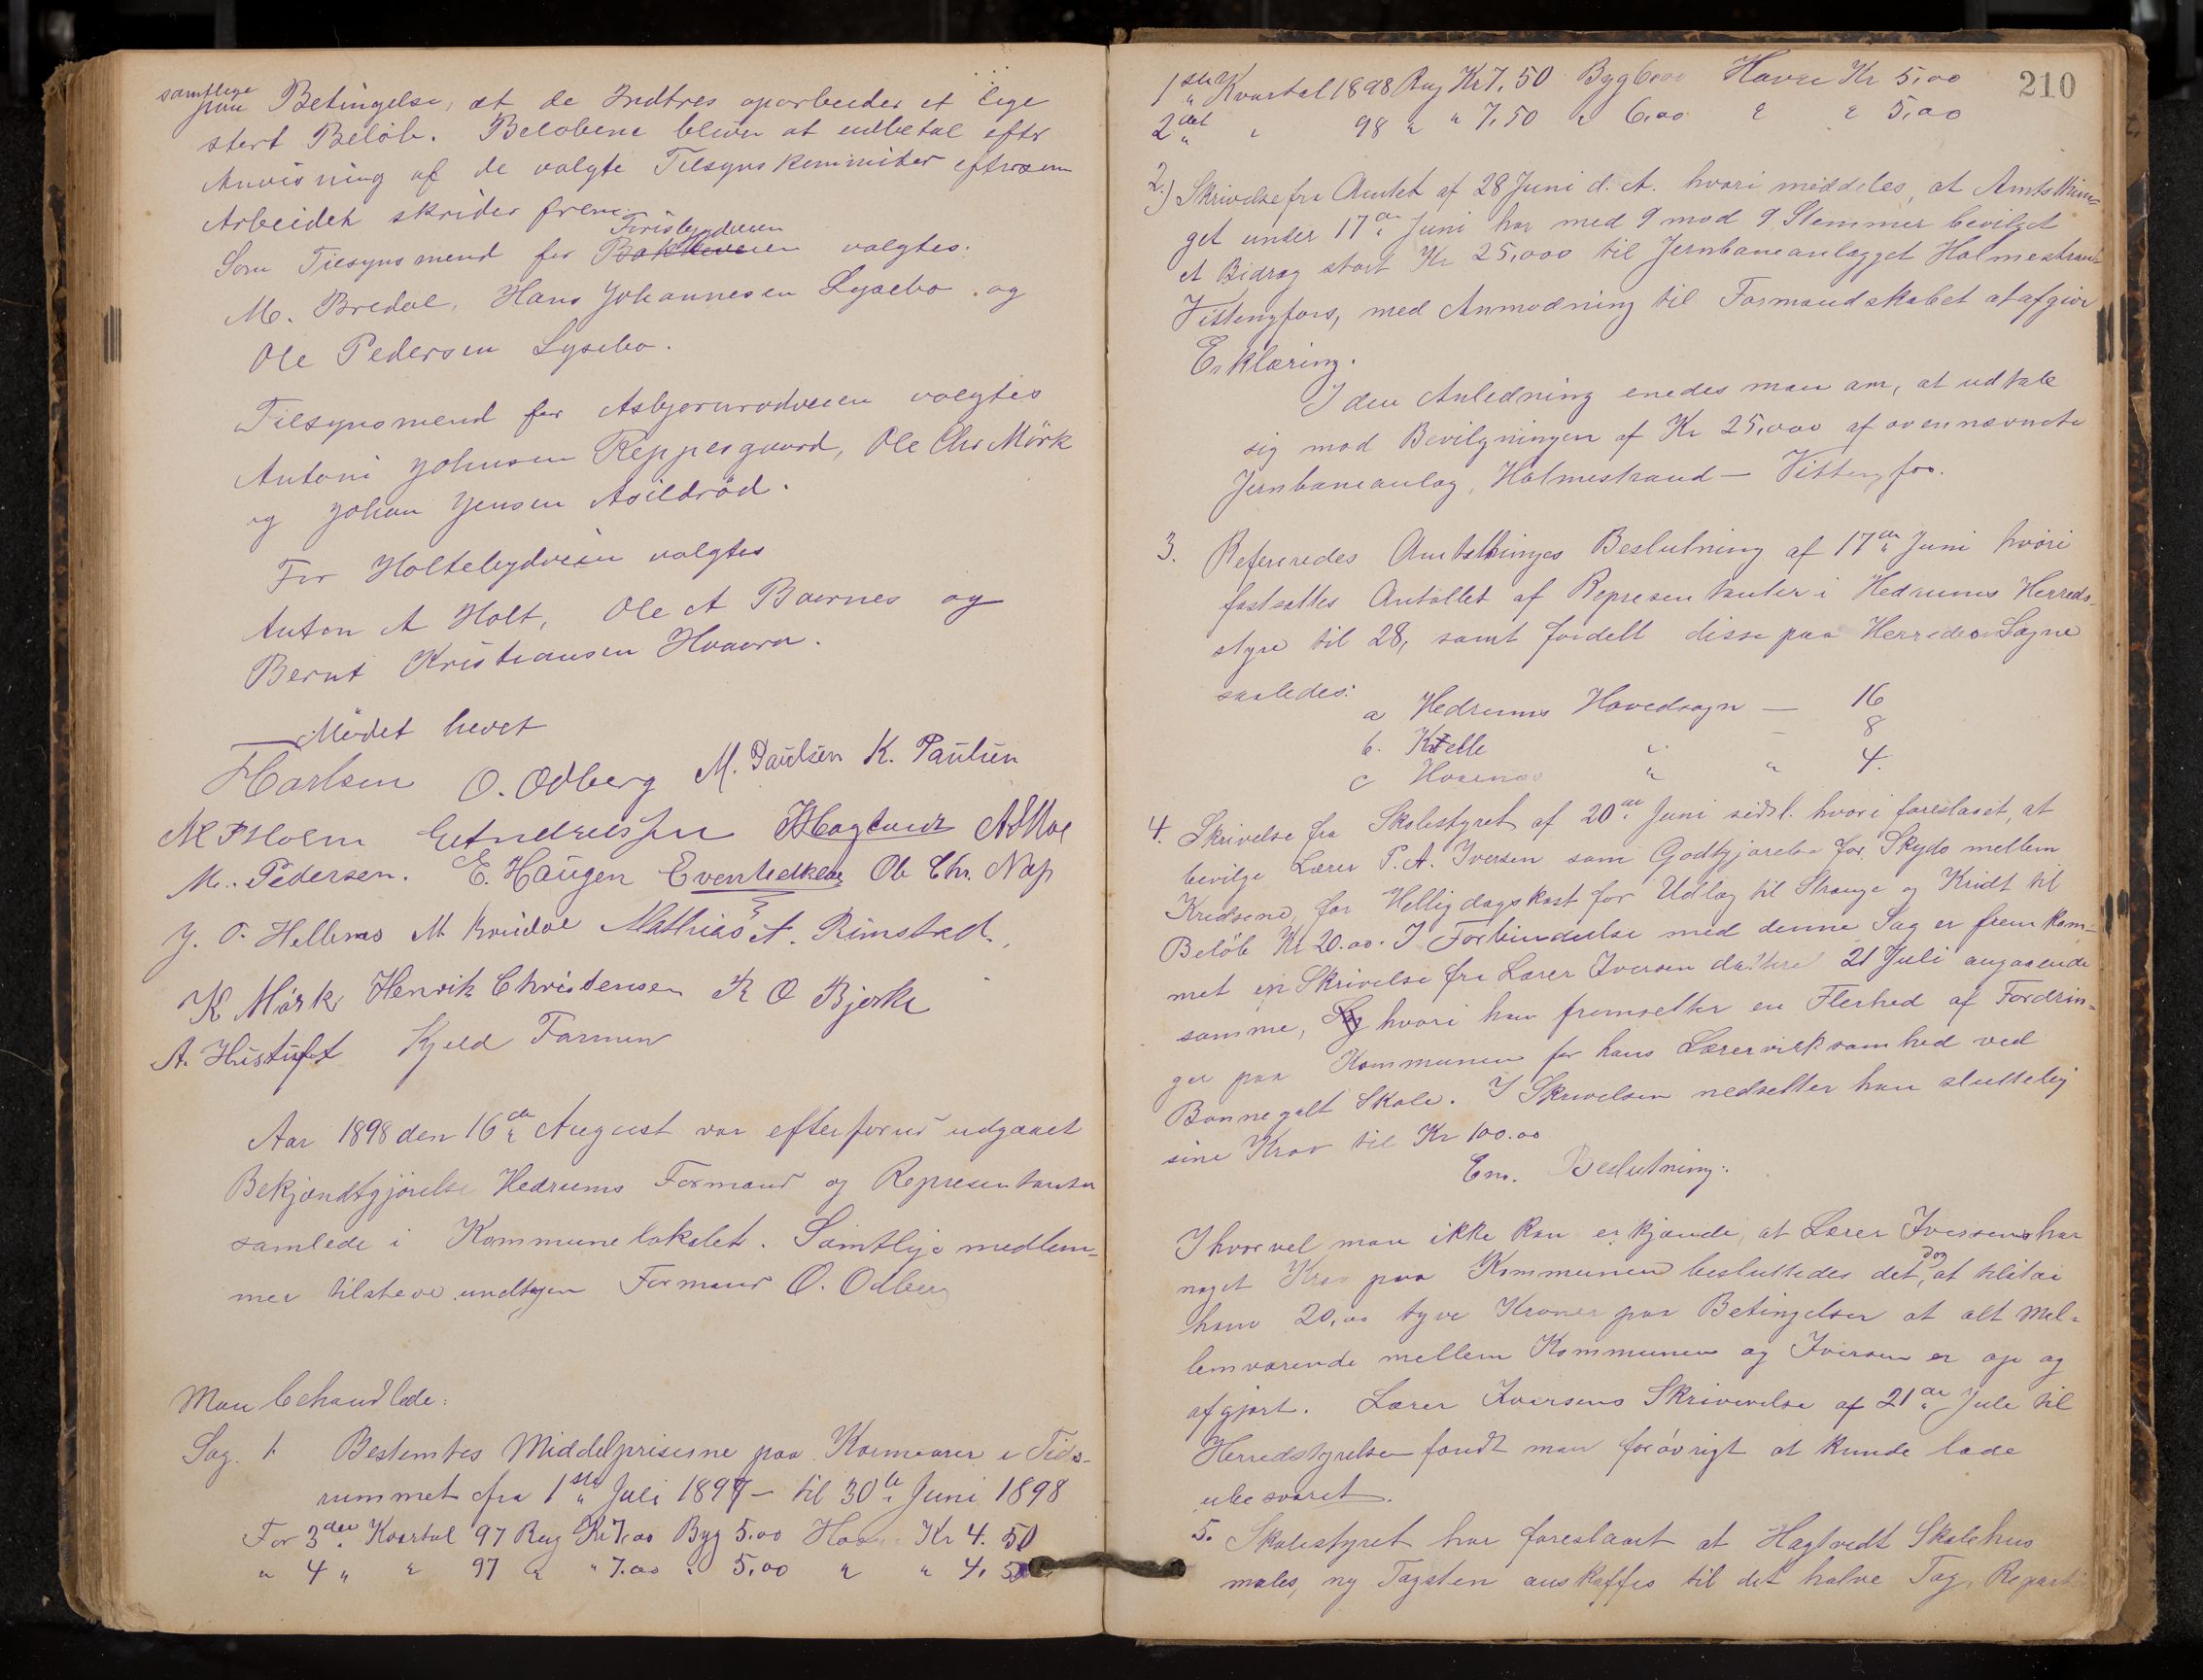 samtlige
paa Betingelse, at de Indtres oparbeider et lige
stort Beløb. Beløbene bliver at udbetal efter
Anvisning af de valgte Tilsynskommiter eftersom
Arbeidet skrider frem.
Som Tilsynsmend for valgtes.
M. Bredal, Hans Johannesen Lysebo og
Ole Pedersen Lysebo.
Tilsynsmend for Asbjørnrødveien valgtes
Antoni Johnsen Reppesgaard, Ole Chr Mørk
og Johan Jensen Asildrød.
For Holtebydveien valgtes
Anton A Holt, Ole A Baarnes og
Bernt Kristiansen Hvaara.
Mødet hevet
O. Odberg M. Paulsen K. Paulsen
M P Holm
M. Pedersen. E. Haugen Ole Chr. Næs
J. O. Hellenes M Bredal Mathias A. Rimstad.
K Mørk Henrik Christensen K O Bjerke
A. Kjeld Farmen
Aar 1898 den 16de August var efter forud udgaaet
Bekjændtgjørelse Hedrums Formænd og Representanter
samlede i Kommunelokalet. Samtlige medlem-
mer tilstede undtagen Formand O. Odberg
Man behandlede:
Sag. 1. Bestemtes Middelpriserne paa Kornvarer i Tids-
rummet fra 1ste Juli 1897 – til 30te Juni 1898
For 3die Kvartal 97 Rug Kr 7.00 Byg 5.00 Havre Kr 4.50
" 4 " " 97 " " 7.00 " 5,00 " " 4.50
210
1ste Kvartal 1898 Rug Kr 7,50 Byg 6.00 Havre Kr 5,00
2det " 98 " " 7,50 " 6,00 " " 5,00
2.) Skrivelse fra Amtet af 28 Juni d. A. hvori meddeles, at Amtsthin-
get under 17de Juni har med 9 mod 9 Stemmer bevilget
et Bidrag stort Kr 25,000 til Jernbaneanlægget Holmestrand
Vittingfoss, med Anmodning til Formandskabet at afgive
Erklæring.
I den Anledning enedes man om, at udtale
sig mod Bevilgningen af Kr 25,000 af ovennævnete
Jernbaneanlæg, Holmestrand – Vittingfos.
3. Refereredes Amtsthinges Beslutning af 17de Juni hvori
fastsattes Antallet af Representanter i Hedrums Herreds-
styre til 28, samt fordelt disse paa Herredes Sogne
saaledes:
a Hedrums Hovedsogn — 16
b. Kvelle " – 8
c Hvarnes " " 4.
4. Skrivelse fra Skolestyret af 20de Juni sidstl. hvori foreslaaet, at
bevilge Lærer P. A. Iversen som Godtgjørelse for Skyds mellem
Kredsene, for Helligdagskost for Udlæg til Strenge og Kridt til
Beløb Kr 20.00. I Forbindelse med denne Sag er fremkom-
met en Skrivelse fra Lærer Iversen dateret 21 Juli angaaende
samme, hvori han fremsetter en Flerhed af Fordrin-
ger paa Kommunen for hans Lærervirksomhed ved
Bonnegalt Skole. I Skrivelsen nedsetter han sluttelig
sine Krav til Kr 100.00
Em. Beslutning:
Ihvorvel man ikke kan erkjænde, at Lærer Iversen har
noget Krav paa Kommunen besluttedes det dog, at tilstaa
ham 20,00 tyve Kroner paa Betingelser at alt Mel-
lemværende mellem Kommunen og Iversen er op og
afgjort. Lærer Iversens Skrivevelse af 21de Jule til
Herredstyrelsen fandt man forøvrigt at kunde lade
ubesvaret.
5. Skolestyret har foreslaaet at Hagtvedt Skolehus
males, ny Tagsten anskaffes til det halve Tag,